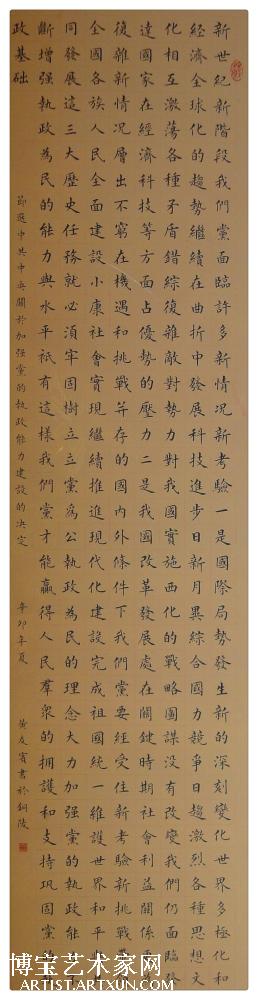 新世紀新階段我們黨面臨許多新情况新考驗一是國際局勢發生新的深刻變化世界多極化和
經濟全球化的趨勢繼續在曲折中發展科技進步日新月異綜合國力競爭日趨激烈各種思想文
化相互激蕩各種矛盾錯綜復雜敵對勢力對我國實施西化的戰略圖謀没有改變我們仍面臨發
達國家在經濟科技等方面占優勢的壓力二是我國改革發展處在關鍵時期社會利益關係更
復雜新情况層出不窮在機遇和挑戰并存的國内外條件下我們黨要經受住新考驗新挑戰
全國各族人民全面建設小康社會實現繼續推進現代化建設完成祖國統一維護世界和平與
同發展這三大歷史任務就必須牢固樹立立黨為公執政為民的理念大力加强黨的執政能
斷增强執政為民的能力與水平祇有這樣我們黨才能贏得人民羣衆的擁護和支持巩固黨的
政基础
節選中共中央關於加强黨的執政能力建設的决定 辛卯年夏 黄友賓書於銅陵
博宝艺术家网
ARTIST.ARTXUN.COM